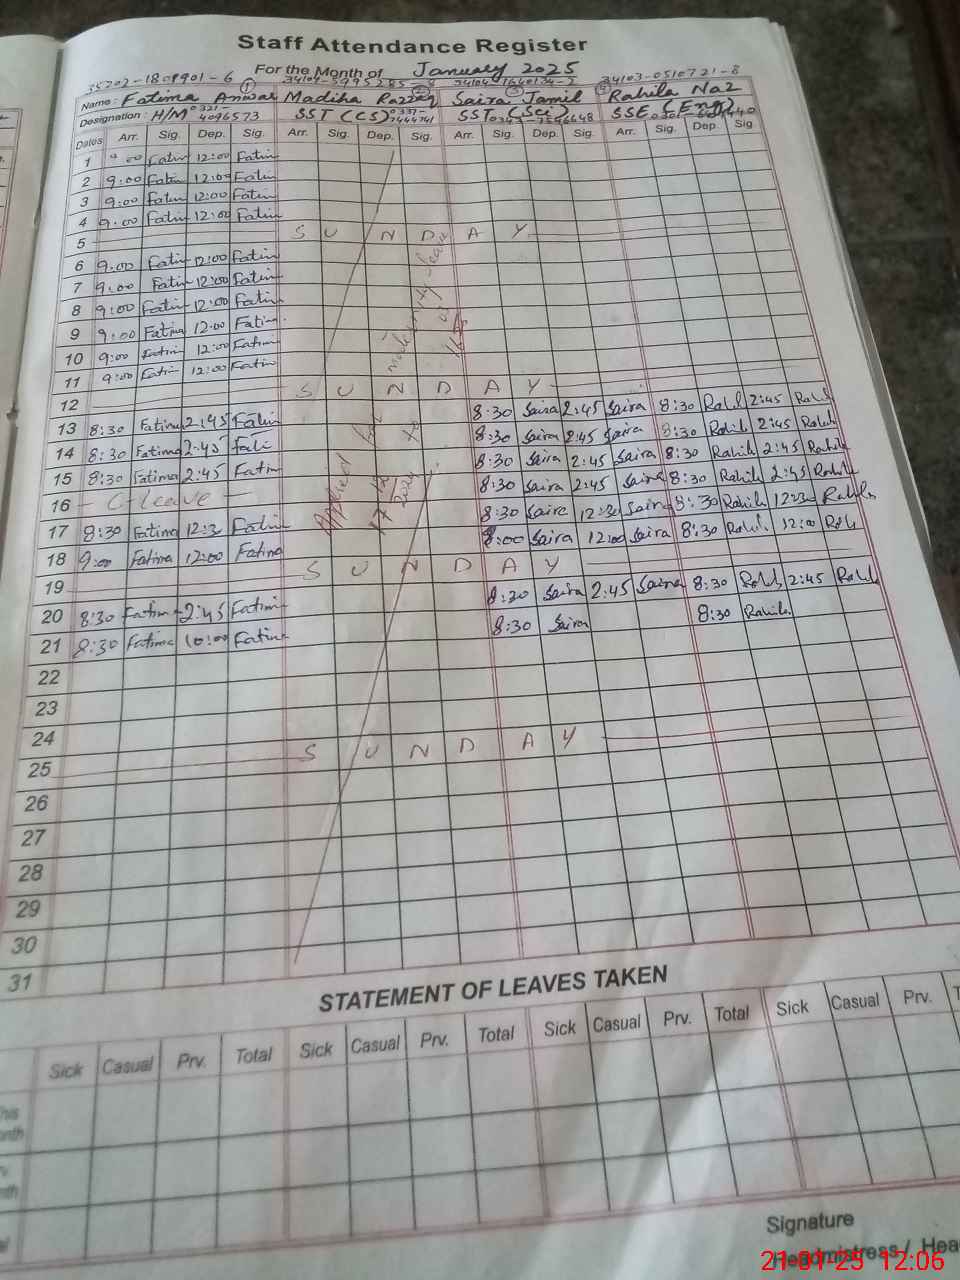 Staff Attendance Register
For the Month of January 2025
35202-1809901-6
Name: Fatima Anwar Madiha Razzaq Saira Jamil Rahila Naz
Designation: H/M SST (CS) SST (Sci) SSE (Eng)
4096573
Dates Arr. Sig. Dep. Sig. Arr. Sig. Dep. Sig. Arr. Sig. Dep. Sig. Arr. Sig. Dep. Sig
1 9:00 Fatim 12:00 Fatim
2 9:00 Fatim 12:00 Fatim
3 9:00 Fatim 12:00 Fatim
4 9:00 Fatim 12:00 Fatim
5 S U N D A Y
6 9:00 Fatim 12:00 Fatim
7 9:00 Fatim 12:00 Fatim
8 9:00 Fatim 12:00 Fatim
9 9:00 Fatima 12:00 Fatima
10 9:00 Fatim 12:00 Fatim
11 9:00 Fatim 12:00 Fatim
12 S U N D A Y
13 8:30 Fatima 2:45 Fatim 8:30 Saira 2:45 Saira 8:30 Rahil 2:45 Rahil
14 8:30 Fatima 2:45 Fati 8:30 Saira 2:45 Saira 8:30 Rahila 2:45 Rahila
15 8:30 Fatima 2:45 Fatim 8:30 Saira 2:45 Saira 8:30 Rahila 2:45 Rahila
16 C-Leave 8:30 Saira 2:45 Saira 8:30 Rahila 2:45 Rahila
17 8:30 Fatima 12:30 Fatim 8:30 Saira 12:30 Saira 8:30 Rahila 12:30 Rahila
18 9:00 Fatima 12:00 Fatima 9:00 Saira 12:00 Saira 8:30 Rahi 12:00 Rah
19 S U N D A Y
20 8:30 Fatima 2:45 Fatima 8:30 Saira 2:45 Saira 8:30 Rahil 2:45 Rahil
21 8:30 Fatima 10:00 Fatima 8:30 Saira 8:30 Rahila
22
23
24
25 S U N D A Y
26
27
28
29
30
31
Applied for maternity leave
17/12/2024 to
STATEMENT OF LEAVES TAKEN
Sick Casual Prv. Total Sick Casual Prv. Total Sick Casual Prv. Total Sick Casual Prv.
Signature
Headmistress /
21-01-25 12:06